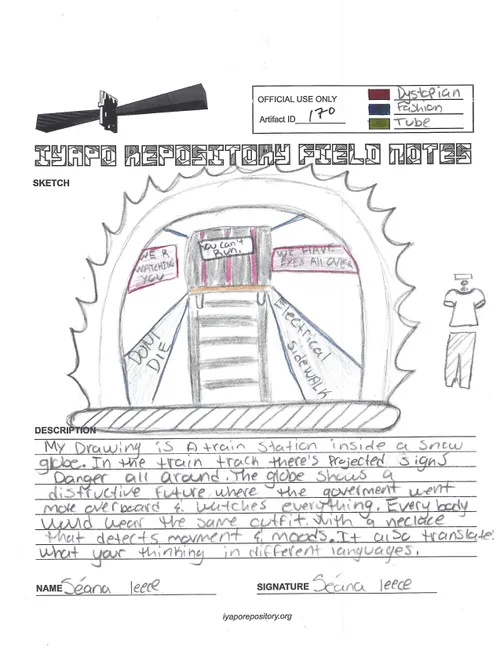 OFFICIAL USE ONLY
Artifact ID 170
Dystopian
Fashion
Tube
IYAPO REPOSITORY FIELD NOTES
SKETCH
You can't
Run.
WE R
WATCHING
YOU
WE HAVE
EYES All OVER
DONT
DIE
Electrical
SideWALK
DESCRIPTION
My Drawing is A train Station inside a Snow
globe. In the train track there's Projected Signs
Danger all around. The globe shows a
distructive future where the goverment went
more overboard & watches everything. Everybody
would wear the same outfit with a neclace
that detects movment & moods. It also translates
what your thinking in different languages.
NAME Séana leece
SIGNATURE Séana leece
iyaporepository.org